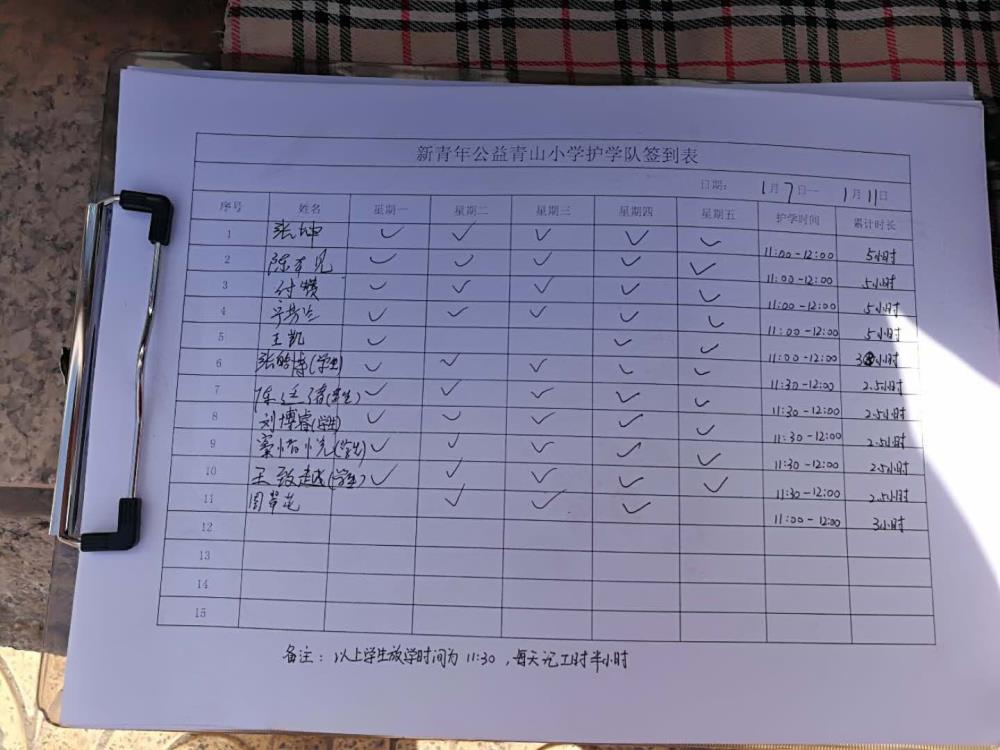 新青年公益青山小学护学队签到表
日期： 1月7日一 1月11日
序号 姓名 星期一 星期二 星期三 星期四 星期五 护学时间 累计时长
1 张坤 ✓ ✓ ✓ ✓ ✓ 11:00-12:00 5小时
2 ✓ ✓ ✓ ✓ ✓ 11:00-12:00 5小时
3 ✓ ✓ ✓ ✓ ✓ 11:00-12:00 5小时
4 ✓ ✓ ✓ ✓ ✓ 11:00-12:00 5小时
5 王凯 ✓ ✓ ✓ 11:00-12:00 3小时
6 张皓博(学生) ✓ ✓ ✓ ✓ ✓ 11:30-12:00 2.5小时
7 (学生) ✓ ✓ ✓ ✓ ✓ 11:30-12:00 2.5小时
8 刘博睿(学生) ✓ ✓ ✓ ✓ ✓ 11:30-12:00 2.5小时
9 (学生) ✓ ✓ ✓ ✓ ✓ 11:30-12:00 2.5小时
10 王致越(学生) ✓ ✓ ✓ ✓ ✓ 11:30-12:00 2.5小时
11 ✓ ✓ ✓ 11:00-12:00 3小时
12
13
14
15
备注：以上学生放学时间为11:30，每天记工时半小时